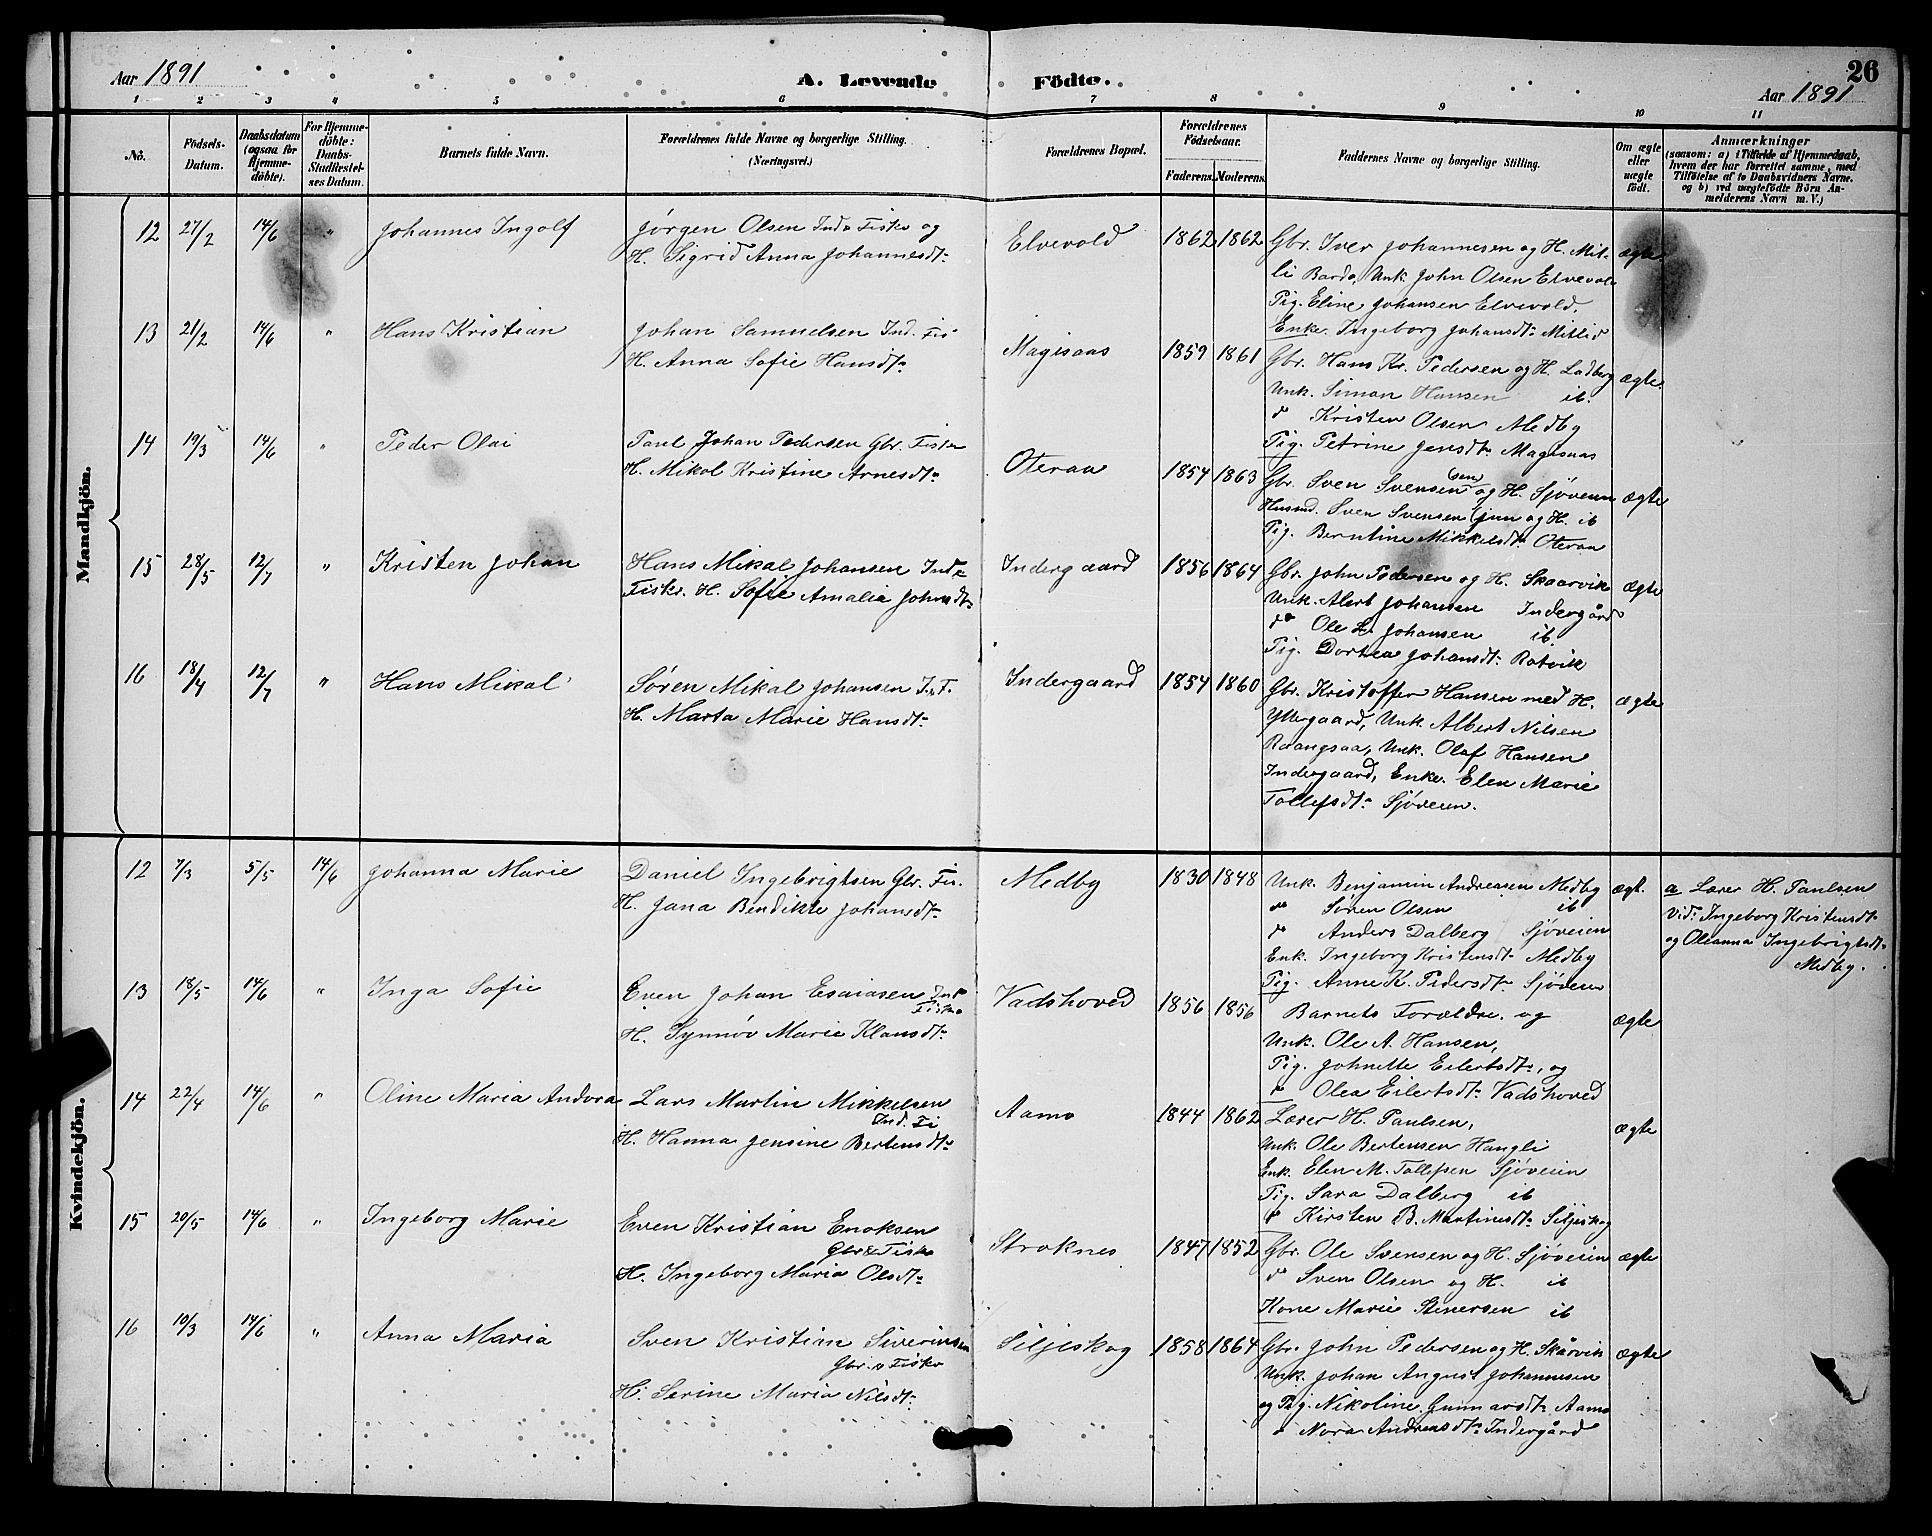 Aar 1891
A. Levende Födte.
26
Aar 1891
1 2 3 4 5 6 7 8 9 10 11
No.
Födsels-Datum.
Daabsdatum (ogsaa for Hjemme-döbte).
For Hjemme-döbte: Daabs-Stadfæstel-ses Datum.
Barnets fulde Navn.
Forældrenes fulde Navne og borgerlige Stilling.
(Næringsvei.)
Forældrenes Bopæl.
Forældrenes Födselsaar.
Faderens. Moderens.
Faddernes Navne og borgerlige Stilling.
Om ægte eller uægte födt.
Anmærkninger
(saasom: a) i Tilfælde af Hjemmedaab,
hvem der har forrettet samme, med
Tilföielse af to Daabsvidners Navne.
og b) ved uægtefödte Börn An-
melderens Navn m. V.)
Mandkjön.
12 27/2 14/6 " Johannes Ingolf
Jørgen Olsen Inds Fisker og
H. Sigrid Anna Johannesdtr
Elvevold 1862 1862
Gbr. Iver Johannesen og H. Mit-
li Bardo, Unk. John Olsen Elvevol
Pig. Eline Johansen Elvevold.
Enke. Ingeborg Johansdtr Mitlid
ægte.
13 21/2 14/6 " Hans Kristian
Johan Samuelsen Ind. Fis
H. Anna Sofie Hansdtr
Magisaas 1859 1861
Gbr. Hans Kr. Pedersen og H. Ladberg
Unk. Simon Hansen ib.
do Kristen Olsen Medby
Pig. Petrine Jensdtr Magisaas
ægte.
14 19/3 14/6 " Peder Olai
Paul Johan Pedersen Gbr. Fisker
H. Mikol Kristine Arnesdtr
Oteraa 1854 1863
Gbr. Sven Svensen (sen) og H. Sjöveien
Husmd. Sven Svensen (jun og H. ib
Pig. Berntine Mikkelsdtr Oteraa
ægte
15 28/5 12/7 " Kristen Johan
Hans Mikal Johansen Inds
Fiskr. H. Sofie Amalia Johnsdtr
Indergaard 1856 1864
Gbr. John Pedersen og H. Skaarvik
Unk. Alert Johansen Indergård
do Ole L. Johansen ib
Pig. Dortea Johansdtr Rotvik
ægte
16 18/4 12/7 " Hans Mikal
Søren Mikal Johansen I. F.
H. Marta Marie Hansdtr
Indergaard 1854 1860
Gbr. Kristoffer Hansen med H.
Yttergaard, Unk. Albert Nilsen
Raangsaa, Unk. Olaf Hansen
Indergaard, Enke. Elen Marie
Tollefsdtr Sjöveien.
ægte
Kvindekjön.
12 7/3 5/5 14/6 Johanna Marie
Daniel Ingebrigtsen Gbr. Fis.
H. Jana Bendikte Johansdtr
Medby 1830 1848
Unk. Benjamin Andreasen Medby
do Søren Olsen ib
do Anders Dalberg Sjöveien
Enk. Ingeborg Kristensdtr Medby
Pig. Anne K. Pedersdtr Sjöveien
ægt.
a Lærer H. Paulsen
Vid. Ingeborg Kristensdtr
og Oleanna Ingebrigtsdtr
Medby.
13 18/5 14/6 " Inga Sofie
Even Johan Esaiasen Ind
Fisker
H. Synnøv Marie Klausdtr
Vadshoved 1856 1856
Barnets Forældre og
Unk. Ole A. Hansen,
Pig. Johnette Eilertsdtr, og
do Olea Eilertsdtr Vadshoved
ægte
14 22/4 14/6 " Oline Maria Andora
Lars Martin Mikkelsen
Ind. Fi
H. Hanna Jensine Bertensdtr
Aamo 1844 1862
Lærer H. Paulsen,
Unk. Ole Bertensen Hangli
Enk. Elen M. Tollefsen Sjöveien
Pig. Sara Dalberg ib
do Kirsten B. Martinesdtr Siljeskog
ægte
15 20/5 14/6 " Ingeborg Marie
Even Kristian Enoksen
Gbr & Fisker
H. Ingeborg Maria Olsdtr
Stroknes 1847 1852
Gbr. Ole Svensen og H. Sjöveien
do Sven Olsen og H. ib
Kone Marie Stenersen ib
ægte
16 10/3 14/6 " Anna Maria
Sven Kristian Siverinsen
Gbr. & Fisker
H. Serine Maria Nilsdtr
Siljeskog 1858 1864
Gbr. John Pedersen og H. Skårvik
Unk. Johan August Johannesen
og Pig. Nikoline Gunnarsdtr Aamo
do Nora Andreasdtr Indergård
ægte